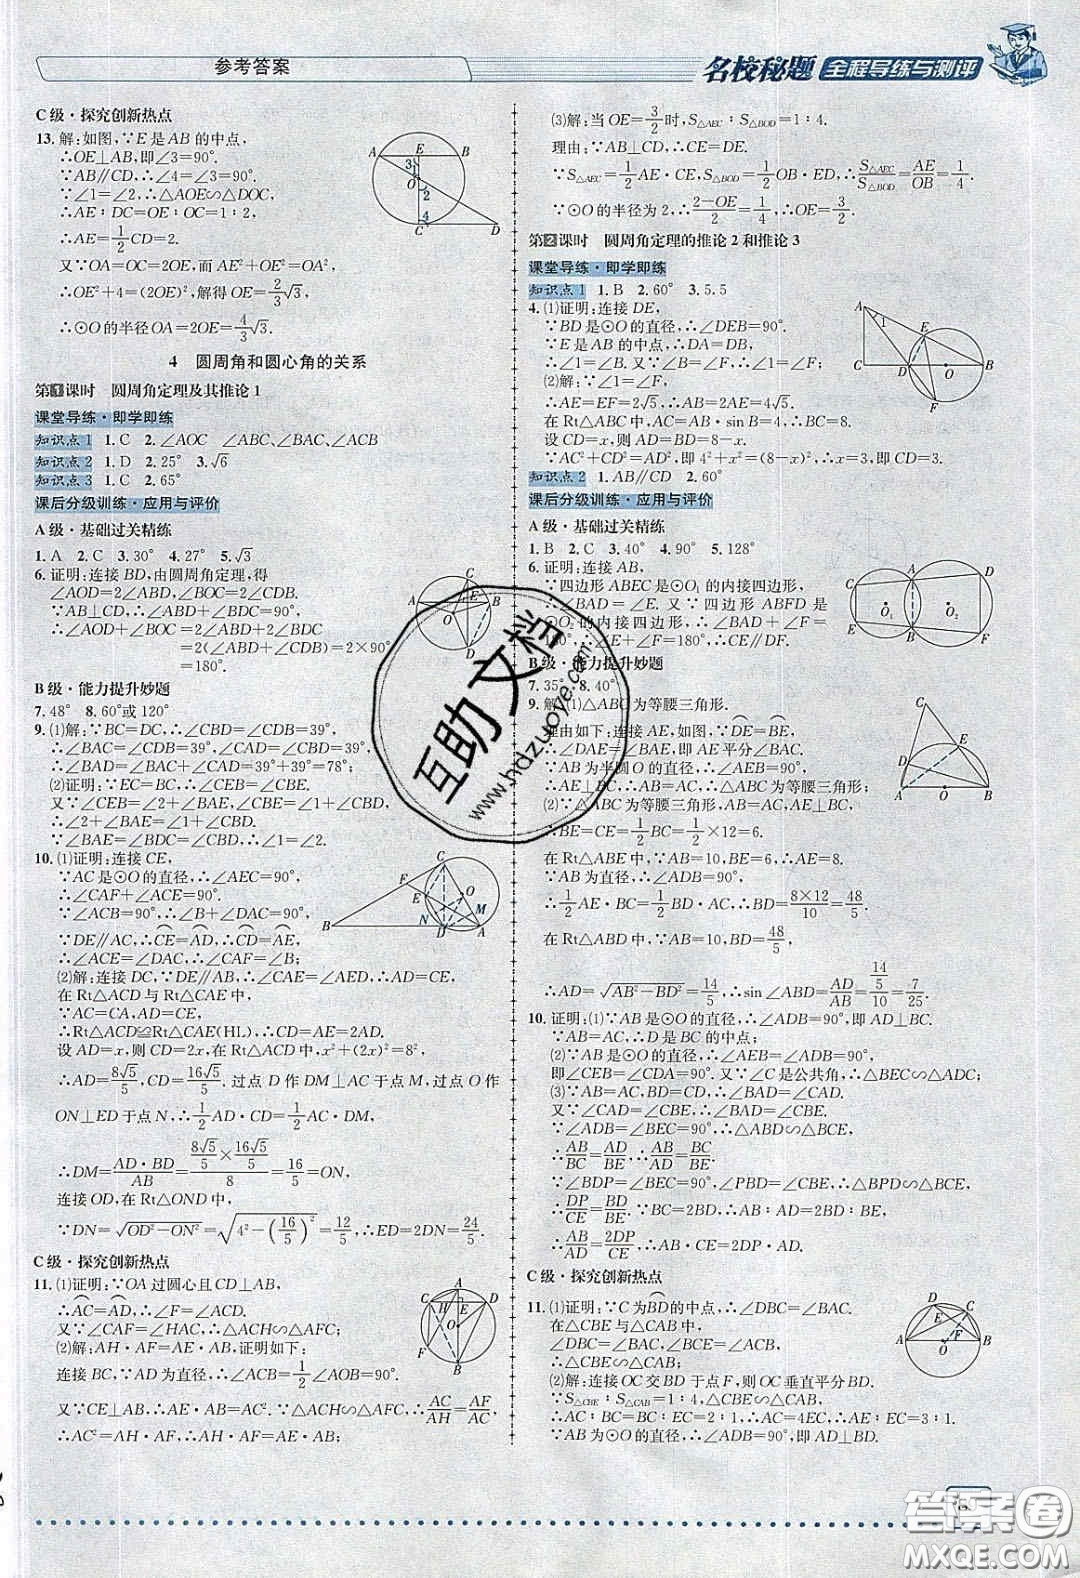 参考答案
名校秘题 全程导练与测评
C级·探究创新热点
13.解:如图,∵E是AB的中点,
∴OE⊥AB,即∠3=90°.
∵AB∥CD,∴∠4=∠3=90°.
∵∠1=∠2,∴△AOE∽△DOC,
∴AE∶DC=OE∶OC=1∶2,
∴AE=1/2CD=2.
又∵OA=OC=2OE,而AE²+OE²=OA²,
∴OE²+4=(2OE)²,解得OE=2/3√3,
∴⊙O的半径OA=2OE=4/3√3.
4 圆周角和圆心角的关系
第1课时 圆周角定理及其推论1
课堂导练·即学即练
知识点1 1.C 2.∠AOC ∠ABC、∠BAC、∠ACB
知识点2 1.D 2.25° 3.√6
知识点3 1.C 2.65°
课后分级训练·应用与评价
A级·基础过关精练
1.A 2.C 3.30° 4.27° 5.√3
6.证明:连接BD,由圆周角定理,得
∠AOD=2∠ABD,∠BOC=2∠CDB.
∵AB⊥CD,∴∠ABD+∠CDB=90°,
∴∠AOD+∠BOC=2∠ABD+2∠CDB
=2(∠ABD+∠CDB)=2×90°
=180°.
B级·能力提升妙题
7.48° 8.60°或120°
9.(1)解:∵BC=DC,∴∠CBD=∠CDB=39°,
∴∠BAC=∠CDB=39°,∠CAD=∠CBD=39°,
∴∠BAD=∠BAC+∠CAD=39°+39°=78°;
(2)证明:∵EC=BC,∴∠CEB=∠CBE.
又∵∠CEB=∠2+∠BAE,∠CBE=∠1+∠CBD,
∴∠2+∠BAE=∠1+∠CBD.
∵∠BAE=∠BDC=∠CBD,∴∠1=∠2.
10.(1)证明:连接CE,
∵AC是⊙O的直径,∴∠AEC=90°,
∴∠CAF+∠ACE=90°.
∵∠ACB=90°,∴∠CAB+∠B=90°.
∵DE∥AC,∴CE=AD,∴CD=AE,
∴∠ACE=∠DAC,∴∠CAF=∠B;
(2)解:连接DC,∵DE∥AB,∴∠CAE=∠AED,∴AD=CE,
在Rt△ACD与Rt△CAE中,
∵AC=CA,AD=CE,
∴Rt△ACD≌Rt△CAE(HL),∴CD=AE=2AD.
设AD=x,则CD=2x,在Rt△ACD中,x²+(2x)²=8²,
∴AD=x=8√5/5,CD=16√5/5.过点D作DM⊥AC于点M,过点O作
ON⊥ED于点N,∴1/2AD·CD=1/2AC·DM,
∴DM=AD·BD/AB=(8√5/5×16√5/5)/8=16/5=ON,
连接OD,在Rt△OND中,
∵DN=√(OD²-ON²)=√(4²-(16/5)²)=12/5,∴ED=2DN=24/5.
C级·探究创新热点
11.(1)证明:∵OA过圆心且CD⊥AB,
∴AC=AD,∴∠F=∠ACD.
又∵∠CAF=∠HAC,∴△ACH∽△AFC;
(2)解:AH·AF=AE·AB,证明如下:
连接BC,∵AD为直径,∴∠ACB=1/2∠AOB=90°.
又∵CE⊥AB,∴AE·AB=AC².∵△ACH∽△AFC,∴AC/AH=AF/AC,
∴AC²=AH·AF,∴AH·AF=AE·AB;
(3)解:当OE=3/2时,S△AEC∶S△BOD=1∶4.
理由:∵AB⊥CD,∴CE=DE.
∵S△AEC=1/2AE·CE,S△BOD=1/2OB·ED,∴S△AEC/S△BOD=AE/OB=1/4.
∵⊙O的半径为2,∴(2-OE)/2=1/4,∴OE=3/2.
第2课时 圆周角定理的推论2和推论3
课堂导练·即学即练
知识点1 1.B 2.60° 3.5.5
4.(1)证明:连接DE,
∵BD是⊙O的直径,∴∠DEB=90°.
∵E是AB的中点,∴DA=DB,
∴∠1=∠B.∵∠B=∠F,∴∠1=∠F.
(2)解:∵∠1=∠F,
∴AE=EF=2√5,∴AB=2AE=4√5.
在Rt△ABC中,AC=AB·sin B=4,∴BC=8.
设CD=x,则AD=BD=8-x.
∵AC²+CD²=AD²,即4²+x²=(8-x)²,∴x=3,即CD=3.
知识点2 1.AB∥CD 2.60°
课后分级训练·应用与评价
A级·基础过关精练
1.B 2.C 3.40° 4.90° 5.128°
6.证明:连接AB,
∵四边形ABEC是⊙O₁的内接四边形,
∴∠BAD=∠E.又∵四边形ABFD是
⊙O₂的内接四边形,∴∠BAD+∠F=
180°,∴∠E+∠F=180°,∴CE∥DF.
B级·能力提升妙题
7.35° 8.40°
9.解:(1)△ABC为等腰三角形.
理由如下:连接AE,如图,∵DE=BE,
∴∠DAE=∠BAE,即AE平分∠BAC.
∵AB为半圆O的直径,∴∠AEB=90°,
∴AE⊥BC,∴△ABC为等腰三角形;
(2)∵△ABC为等腰三角形,AB=AC,AE⊥BC,
∴BE=CE=1/2BC=1/2×12=6.
在Rt△ABE中,∵AB=10,BE=6,∴AE=8.
∵AB为直径,∴∠ADB=90°,
∴1/2AE·BC=1/2BD·AC,∴BD=8×12/10=48/5,
在Rt△ABD中,∵AB=10,BD=48/5,
∴AD=√(AB²-BD²)=14/5,∴sin∠ABD=AD/AB=(14/5)/10=7/25.
10.证明:(1)∵AB是⊙O的直径,∴∠ADB=90°,即AD⊥BC.
∵AB=AC,∴D是BC的中点;
(2)∵AB是⊙O的直径,∴∠AEB=∠ADB=90°,
即∠CEB=∠CDA=90°.又∵∠C是公共角,∴△BEC∽△ADC;
(3)∵AB=AC,BD=CD,∴∠BAD=∠CAD.
又∵∠CAD=∠CBE,∴∠BAD=∠CBE.
∵∠ADB=∠BEC=90°,∴△ABD∽△BCE,
∴AB/BC=AD/BE,∴AB/AD=BC/BE,
∵∠BDP=∠BEC=90°,∠PBD=∠CBE,∴△BPD∽△BCE,
∴DP/CE=BD/BE.∵BC=2BD,∴AB/AD=2BD/BE,
∴AB/AD=2DP/CE,∴CE·AB=2DP·AD.
C级·探究创新热点
11.(1)证明:∵C为BD的中点,∴∠DBC=∠BAC.
在△CBE与△CAB中,
∠DBC=∠BAC,∠BCE=∠ACB,
∴△CBE∽△CAB;
(2)解:连接OC交BD于点F,则OC垂直平分BD.
∵S△CBE∶S△CAB=1∶4,△CBE∽△CAB,
∴AC∶BC=BC∶EC=2∶1,∴AC=4EC,∴AE∶EC=3∶1.
∵AB为⊙O的直径,∴∠ADB=90°,即AD⊥BD.
互助文档
www.hdzuoye.com
答案圈
MXQE.COM